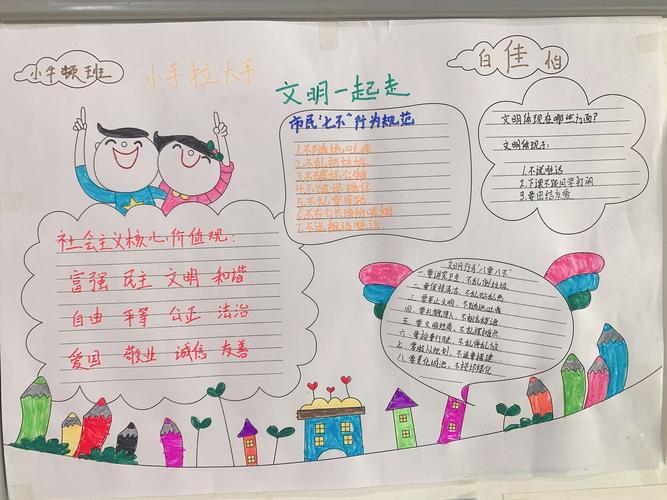 小牛顿班
小手拉大手
文明一起走
白佳怡
市民"七不"行为规范
1.不随地吐痰
2.不乱扔垃圾
3.不损坏公物
4.不破坏绿化
5.不乱穿马路
6.不在公共场所吸烟
7.不说脏话粗话
文明体现在哪些方面?
文明体现于:
1.不说脏话
2.下课不跟同学打闹
3.要团结友爱
社会主义核心价值观:
富强 民主 文明 和谐
自由 平等 公正 法治
爱国 敬业 诚信 友善
文明行为"八要八不"
一 要讲究卫生、不乱倒垃圾
二 要保持清洁、不乱贴乱画
三 要举止文明、不随地吐痰
四 要礼貌待人、不
五 要文明经商、不乱摆摊点
六 要按章行驶、不乱停乱放
七 要服从规划、不违章搭建
八 要美化城池、不损坏绿化